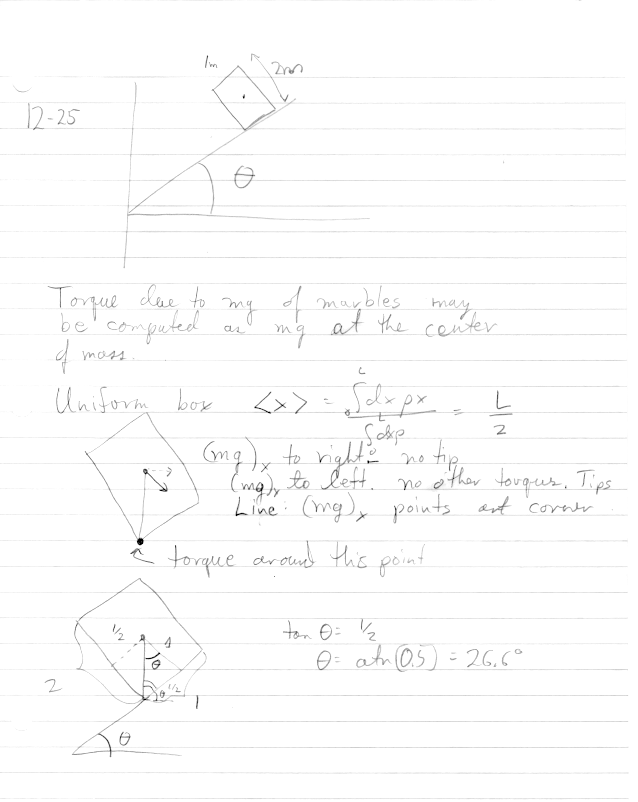 1m
2m
12-25
θ
Torque due to mg of marbles may
be computed as mg at the center
of mass.
Uniform box <x> = ∫₀ᴸdx ρx / ∫₀ᴸdxρ = L/2
(mg)ₓ to right: no tip
(mg)ₓ to left. no other torques. Tips
Line: (mg)ₓ points at corner
torque around this point
1/2
1
θ
2
θ
1/2
1
θ
tan θ = 1/2
θ = atn(0.5) = 26.6°